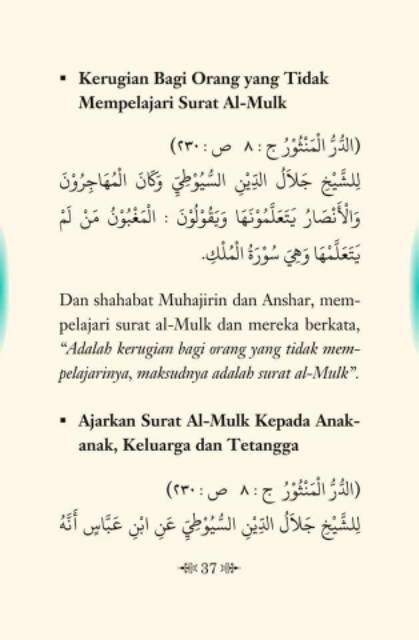 ▪ Kerugian Bagi Orang yang Tidak
Mempelajari Surat Al-Mulk
(الدُّرُّ الْمَنْثُوْرُ ج : ٨ ص : ٢٣٠)
لِلشَّيْخِ جَلَالُ الدِّيْنِ السُّيُوْطِيِّ وَكَانَ الْمُهَاجِرُوْنَ
وَالْأَنْصَارُ يَتَعَلَّمُوْنَهَا وَيَقُوْلُوْنَ : الْمَغْبُوْنُ مَنْ لَمْ
يَتَعَلَّمْهَا وَهِيَ سُوْرَةُ الْمُلْكِ.
Dan shahabat Muhajirin dan Anshar, mem-
pelajari surat al-Mulk dan mereka berkata,
“Adalah kerugian bagi orang yang tidak mem-
pelajarinya, maksudnya adalah surat al-Mulk”.
▪ Ajarkan Surat Al-Mulk Kepada Anak-
anak, Keluarga dan Tetangga
(الدُّرُّ الْمَنْثُوْرُ ج : ٨ ص : ٢٣٠)
لِلشَّيْخِ جَلَالُ الدِّيْنِ السُّيُوْطِيِّ عَنِ ابْنِ عَبَّاسٍ أَنَّهُ
37